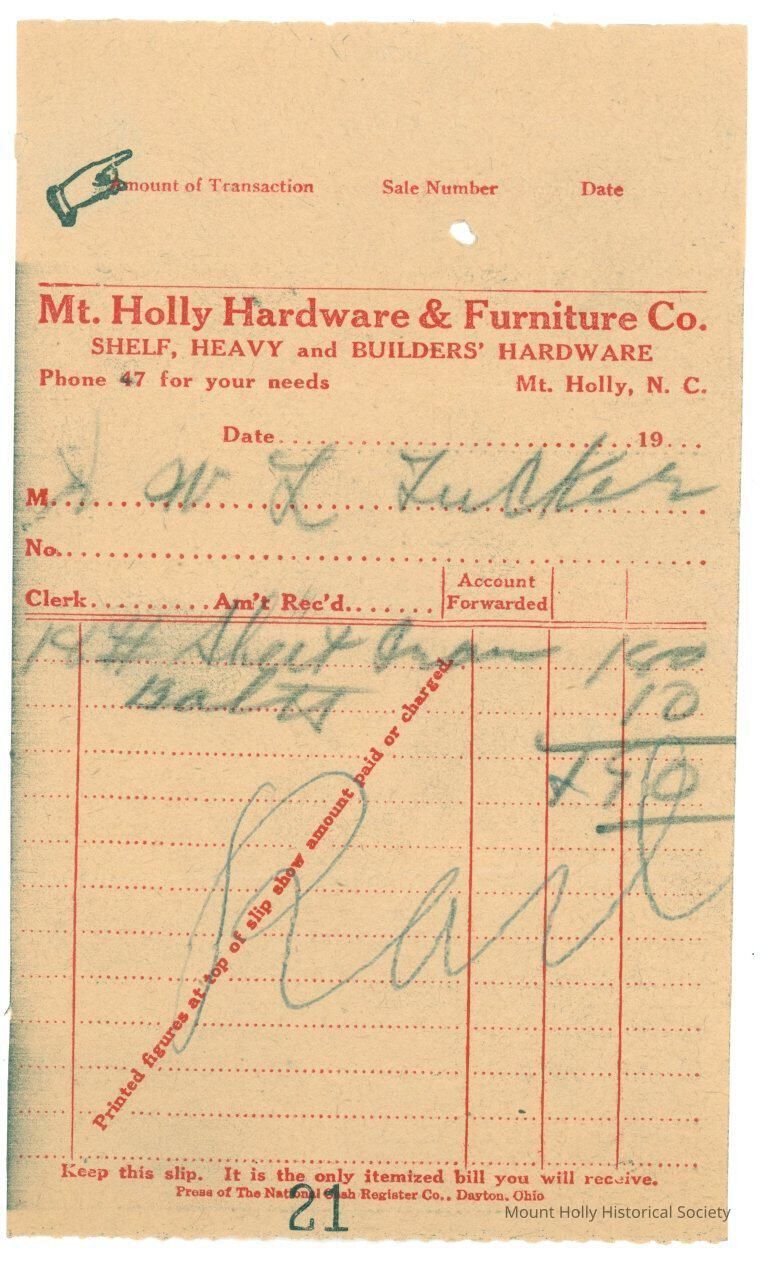 Amount of Transaction Sale Number Date
Mt. Holly Hardware & Furniture Co.
SHELF, HEAVY and BUILDERS' HARDWARE
Phone 47 for your needs Mt. Holly, N. C.
Date 19
M. W L Tucker
No.
Clerk Am't Rec'd. Account Forwarded
14 # Sheet Iron 1 00
Bolts 10
Printed figures at top of slip show amount paid or charged.
Keep this slip. It is the only itemized bill you will receive.
Press of The National Cash Register Co., Dayton, Ohio
21
Mount Holly Historical Society